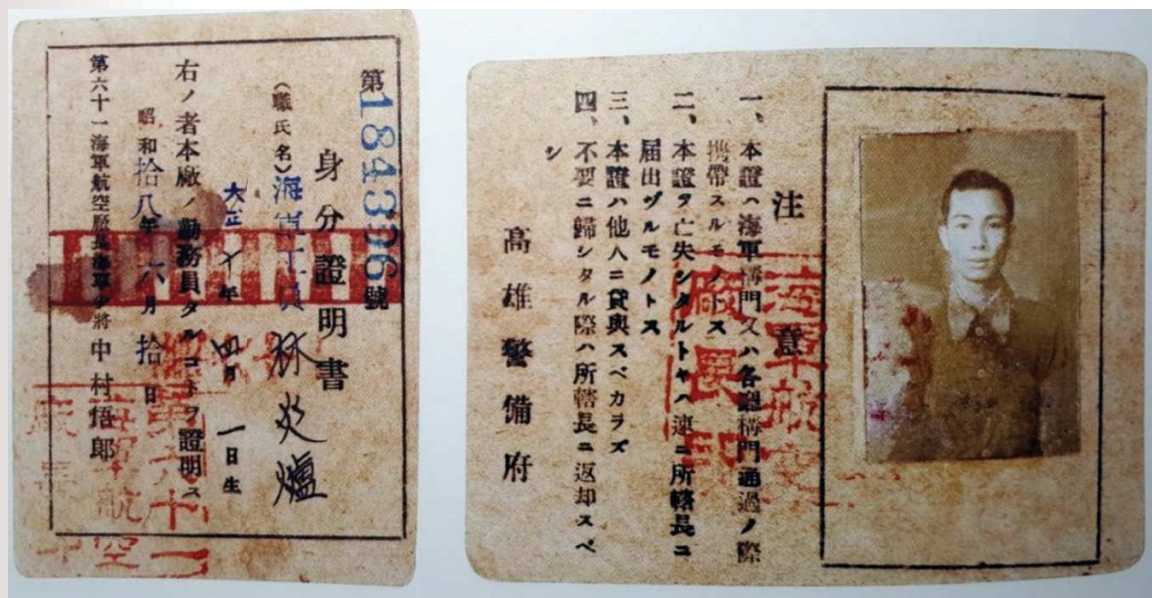 第184396號
身分證明書
(職氏名)海軍工員 林火爐
大正 年四月一日生
右ノ者本廠ノ勤務員タルコトヲ證明ス
昭和拾八年六月拾日
第六十一海軍航空廠長海軍少將 中村悟郎
注意
一、本證ハ海軍構門又ハ各廳構門通過ノ際
携帶スルモノトス
二、本證ヲ亡失シタルトキハ速ニ所轄長ニ
届出ヅルモノトス
三、本證ハ他人ニ貸與スベカラズ
四、不要ニ歸シタル際ハ所轄長ニ返却スベ
シ
高雄警備府